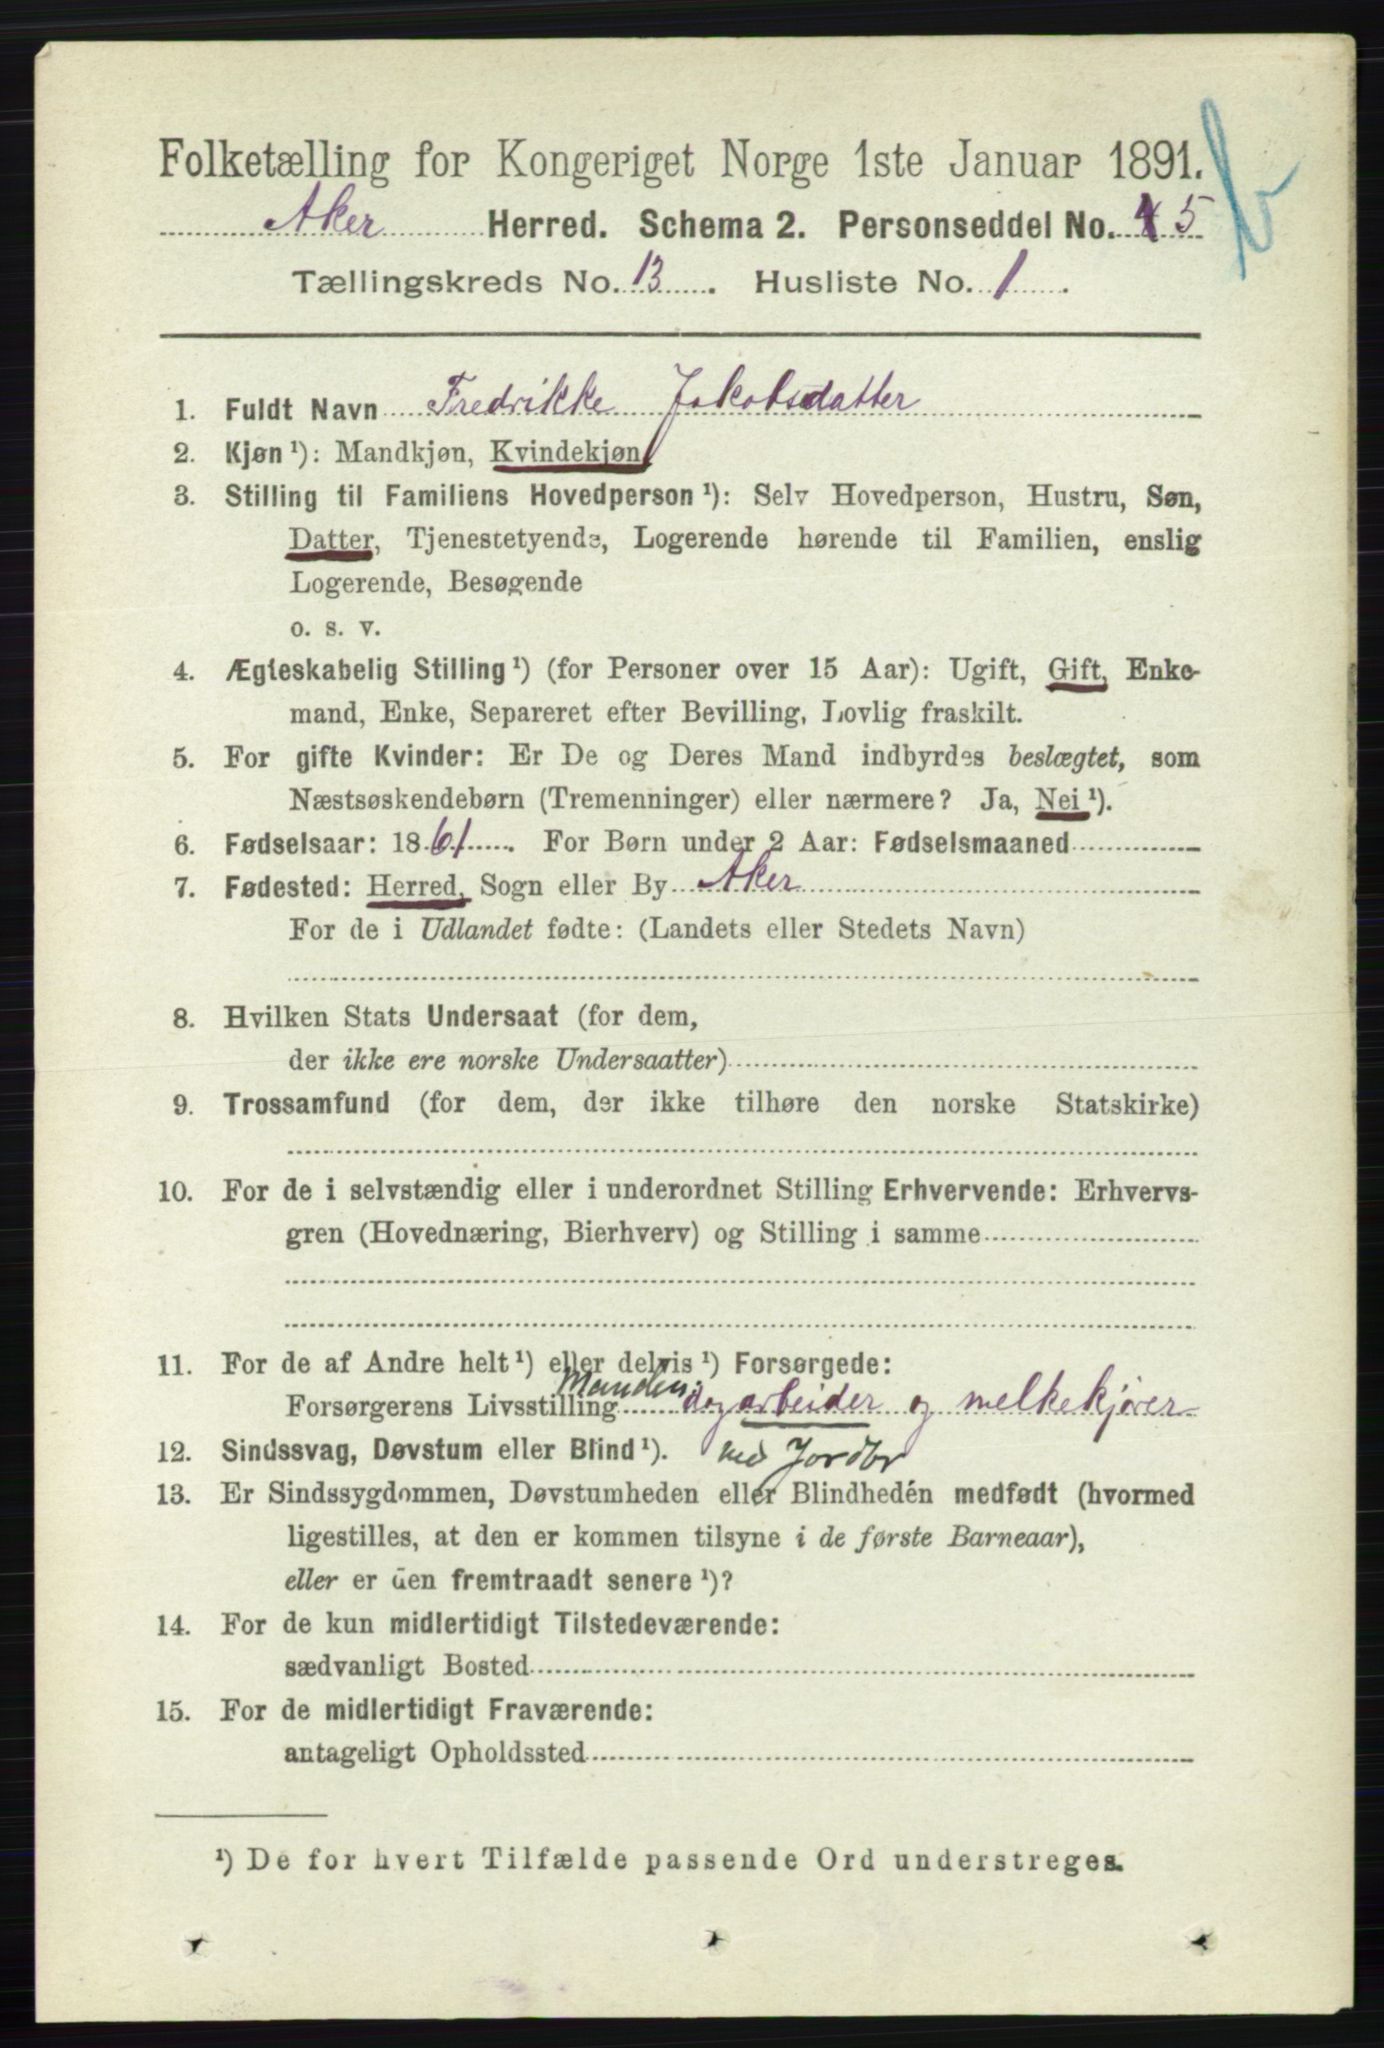 Folketælling for Kongeriget Norge 1ste Januar 1891.
Aker Herred. Schema 2. Personseddel No. 5
Tællingskreds No. 13. Husliste No. 1.
1. Fuldt Navn Fredrikke Jakobsdatter
2. Kjøn¹): Mandkjøn, Kvindekjøn
3. Stilling til Familiens Hovedperson¹): Selv Hovedperson, Hustru, Søn,
Datter, Tjenestetyende, Logerende hørende til Familien, enslig
Logerende, Besøgende
o. s. v.
4. Ægteskabelig Stilling¹) (for Personer over 15 Aar): Ugift, Gift, Enke-
mand, Enke, Separeret efter Bevilling, Lovlig fraskilt.
5. For gifte Kvinder: Er De og Deres Mand indbyrdes beslægtet, som
Næstsøskendebørn (Tremenninger) eller nærmere? Ja, Nei¹).
6. Fødselsaar: 1861. For Børn under 2 Aar: Fødselsmaaned
7. Fødested: Herred, Sogn eller By Aker
For de i Udlandet fødte: (Landets eller Stedets Navn)
8. Hvilken Stats Undersaat (for dem,
der ikke ere norske Undersaatter)
9. Trossamfund (for dem, der ikke tilhøre den norske Statskirke)
10. For de i selvstændig eller i underordnet Stilling Erhvervende: Erhvervs-
gren (Hovednæring, Bierhverv) og Stilling i samme
11. For de af Andre helt¹) eller delvis¹) Forsørgede:
Manden:
Forsørgerens Livsstilling dagarbeider og melkekjører
12. Sindssvag, Døvstum eller Blind¹). ved Jordbr
13. Er Sindssygdommen, Døvstumheden eller Blindhedén medfødt (hvormed
ligestilles, at den er kommen tilsyne i de første Barneaar),
eller er den fremtraadt senere¹)?
14. For de kun midlertidigt Tilstedeværende:
sædvanligt Bosted
15. For de midlertidigt Fraværende:
antageligt Opholdssted
¹) De for hvert Tilfælde passende Ord understreges.